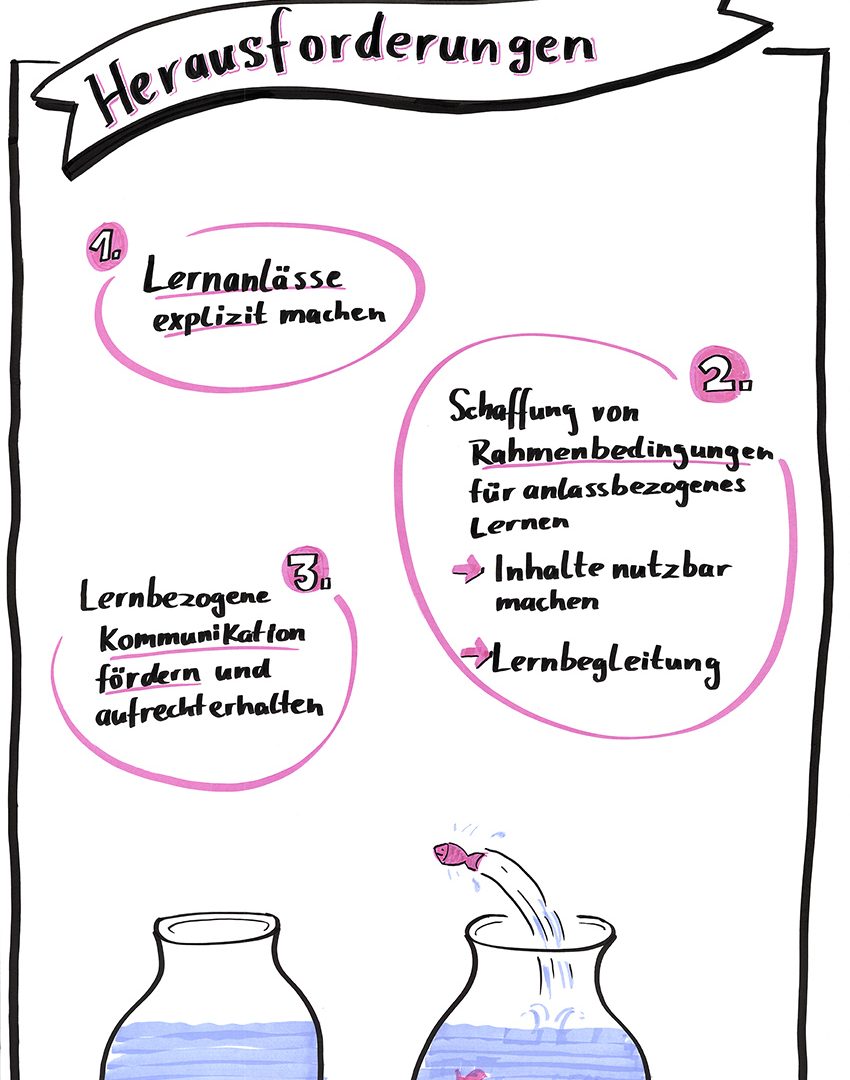 Herausforderungen
1.
Lernanlässe
explizit machen
2.
Schaffung von
Rahmenbedingungen
für anlassbezogenes
Lernen
→ Inhalte nutzbar
machen
→ Lernbegleitung
3.
Lernbezogene
Kommunikation
fördern und
aufrechterhalten